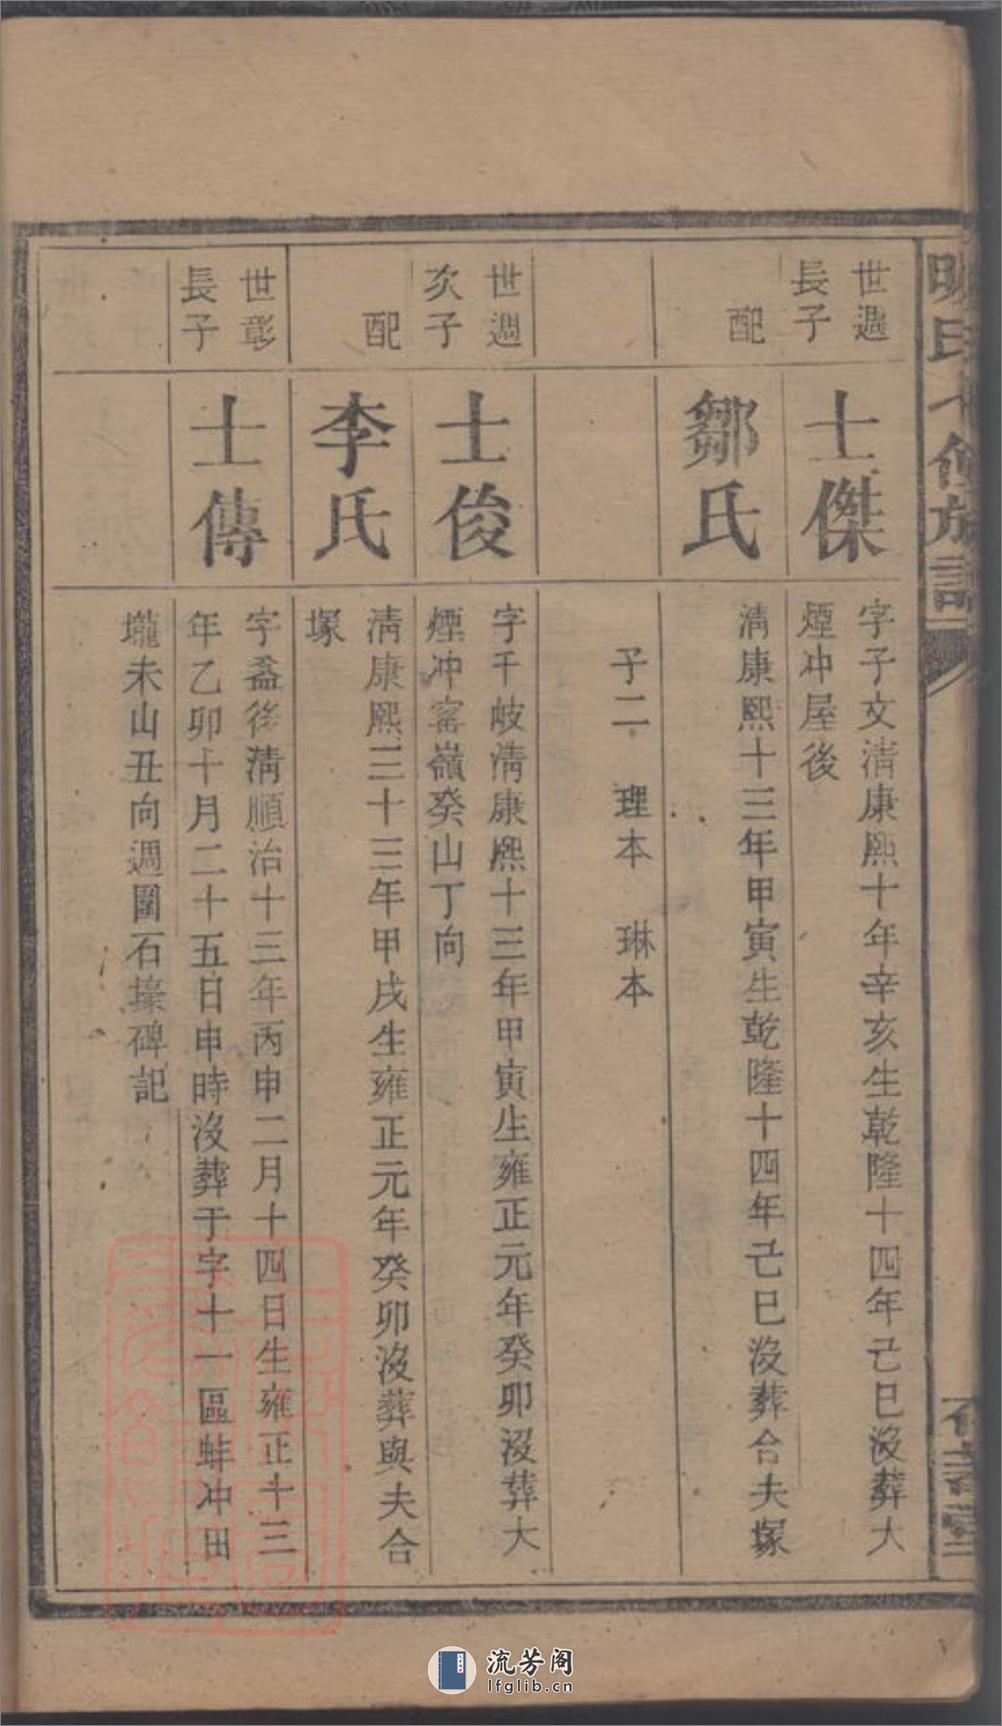 氏 修族譜
世週長子
士傑
字子文清康熙十年辛亥生乾隆十四年己巳沒葬大
煙冲屋後
配
鄒氏
清康熙十三年甲寅生乾隆十四年己巳沒葬合夫塚
子二 理本 琳本
世週次子
士俊
字千岐清康熙十三年甲寅生雍正元年癸卯沒葬大
煙冲窰嶺癸山丁向
配
李氏
清康熙三十三年甲戌生雍正元年癸卯沒葬與夫合
塚
世彰長子
士傳
字盖後清順治十三年丙申二月十四日生雍正十三
年乙卯十月二十五日申時沒葬于字十一區蚌冲田
壠未山丑向週圍石撁碑記
流芳阁
lfglib.cn